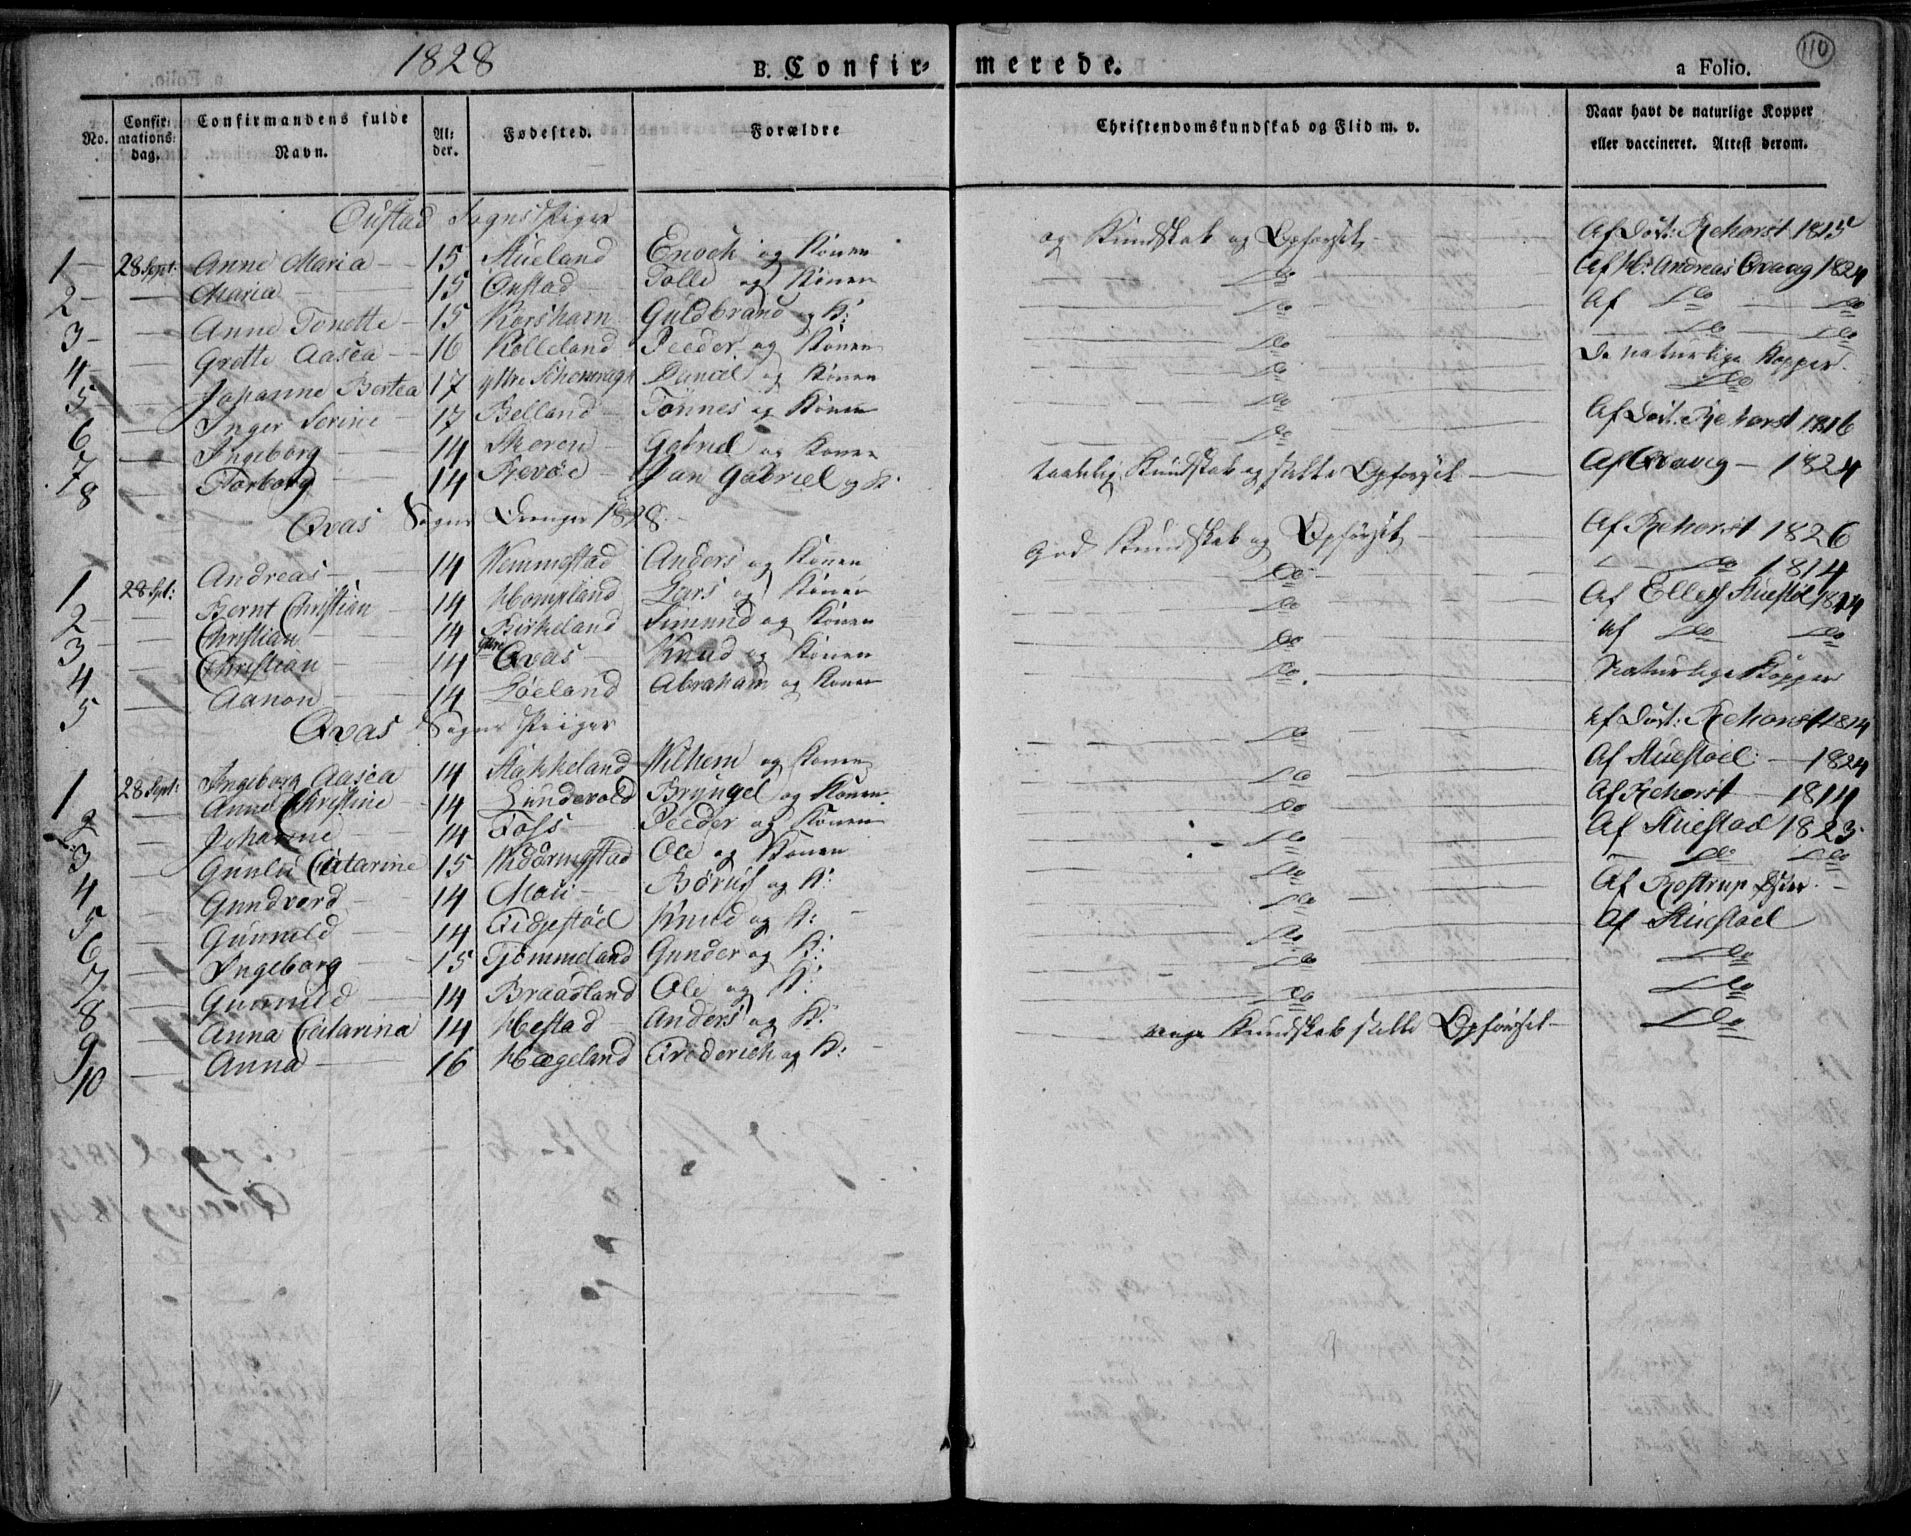 1828 B. Confirmerede. a Folio. 110
No. Confirmationsdag. Confirmandens fulde Navn. Alder. Fødested. Forældre Christendomskundskab og Flid m. v. Naar havt de naturlige Kopper eller vaccineret. Attest derom.
Oustad Sogns Piger
1 28 Sept: Anne Maria 15 Stueland Enoch og Konen og Kundskab og Opførsel Af Dost: Rehorst 1815
2 Maria 15 Oustad Tolle og Konen Do Af H: Andreas Qvavig 1824
3 Anne Tonette 15 Korshavn Guldbrand og K: Do Af Do Do
4 Grette Aasea 16 Kolleland Peeder og Konen Do Do Do
5 Johanne Bertea 17 yttre Daniel og Konen Do De naturlige Kopper
6 Inger Serine 17 Belland Tønnes og Konen Do Do
7 Ingeborg 14 Skoren Gabriel og Konen Do Af Dost: Rehorst 1816
8 Torborg 14 Revøe Jan Gabriel og K: taalelig Kundskab og Opførsel Af Qvavig 1824
Qvas Sogns Drenge 1828
1 28 Spt: Andreas 14 Vemmestad Anders og Konen God Kundskab og Opførsel Af Rehorst 1826
2 Bernt Christian 14 Hompland Lars og Konen Do Do 1814
3 Christian 14 Birkeland Simund og Konen Do Af Ellef Stuestøl
4 Christian 14 Qvas Knud og Konen Do Af Do Do
5 Aanon 14 Løeland Abraham og Konen Do Naturlige Kopper
Qvas Sogns Piiger
1 28 Sept: Ingeborg Aasea 14 Stakkeland Vilhem og Konen Do Af Dost: Rehorst 1814
2 Anne Christine 14 Lindevold Bryngel og Konen Do Af Stuestoel: 1824
3 Johanne 14 Foss Peeder og Konen Do Af Rehorst 1814
4 Gunild Catarine 15 Ole og Konen Do Af Stuestad 1823
5 Gundvord 14 Moi Børuf og K: Do Do Do
6 Gunnild 14 Fidjestøel Knud og K: Do Af Rostrup
7 Ingeborg 15 Tjommeland Gunder og K: Do Af Stuestoel
8 Gunnild 14 Braadland Ole og K: Do Do
9 Anna Catarina 14 Hestad Anders og K: Do Do
10 Anna 16 Hægeland Frederich og K: ringe Kundskab Opførsel Do